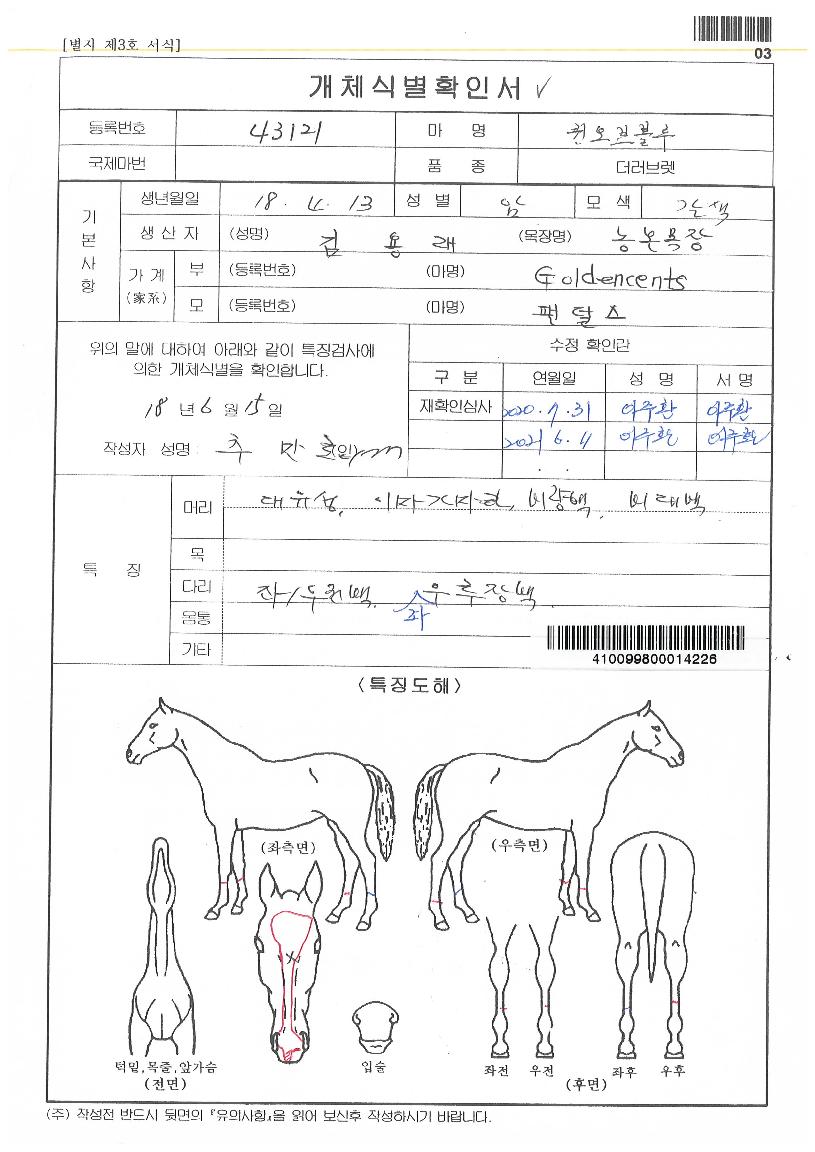 03
[별지 제3호 서식]
개체식별확인서 ✓
등록번호 43121 마 명
국제마번 품 종 더러브렛
기본사항
생년월일 18. 4. 13 성 별 암 모 색 갈색
생 산 자 (성명) 김 용 래 (목장명) 농본목장
가 계 (家系) 부 (등록번호) (마명) Goldencents
모 (등록번호) (마명) 팬 달 스
위의 말에 대하여 아래와 같이 특징검사에
의한 개체식별을 확인합니다.
18 년 6 월 15 일
작성자 성명 : 추 만 호
수정 확인란
구 분 연월일 성 명 서 명
재확인심사 2020. 7. 31 이주환 이주환
2021 6. 4 이주환 이주환
. .
특 징
머리 대유성, 비량백, 비대백
목
다리 좌 우후장백
좌
몸통
기타
410099800014226
<특징도해>
(좌측면) (우측면)
턱밑,목줄,앞가슴
(전면)
입술
좌전 우전 좌후 우후
(후면)
(주) 작성전 반드시 뒷면의 『유의사항』을 읽어 보신후 작성하시기 바랍니다.